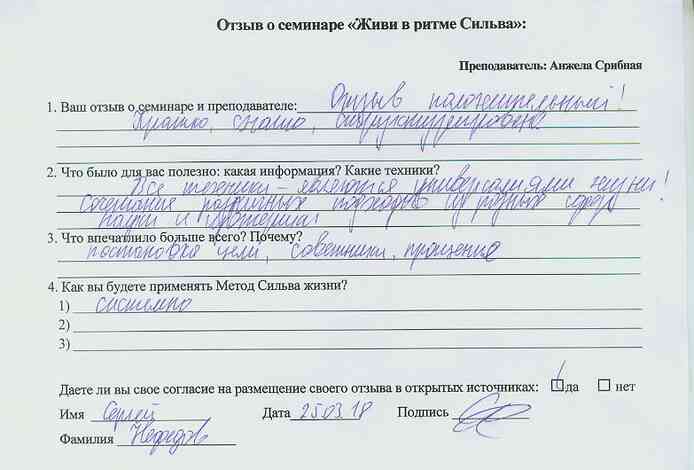 Отзыв о семинаре «Живи в ритме Сильва»:
Преподаватель: Анжела Срибная
1. Ваш отзыв о семинаре и преподавателе: Отзыв положительный!
Кратко, структурировано
2. Что было для вас полезно: какая информация? Какие техники?
Все техники – являются универсалиями жизни!
Сочетание различных подходов из разных сфер
науки и
3. Что впечатлило больше всего? Почему?
постановка цели, советники, прощение
4. Как вы будете применять Метод Сильва жизни?
1) системно
2)
3)
Даете ли вы свое согласие на размещение своего отзыва в открытых источниках: да нет
Имя Сергей Дата 25.03.18 Подпись
Фамилия Нефедов